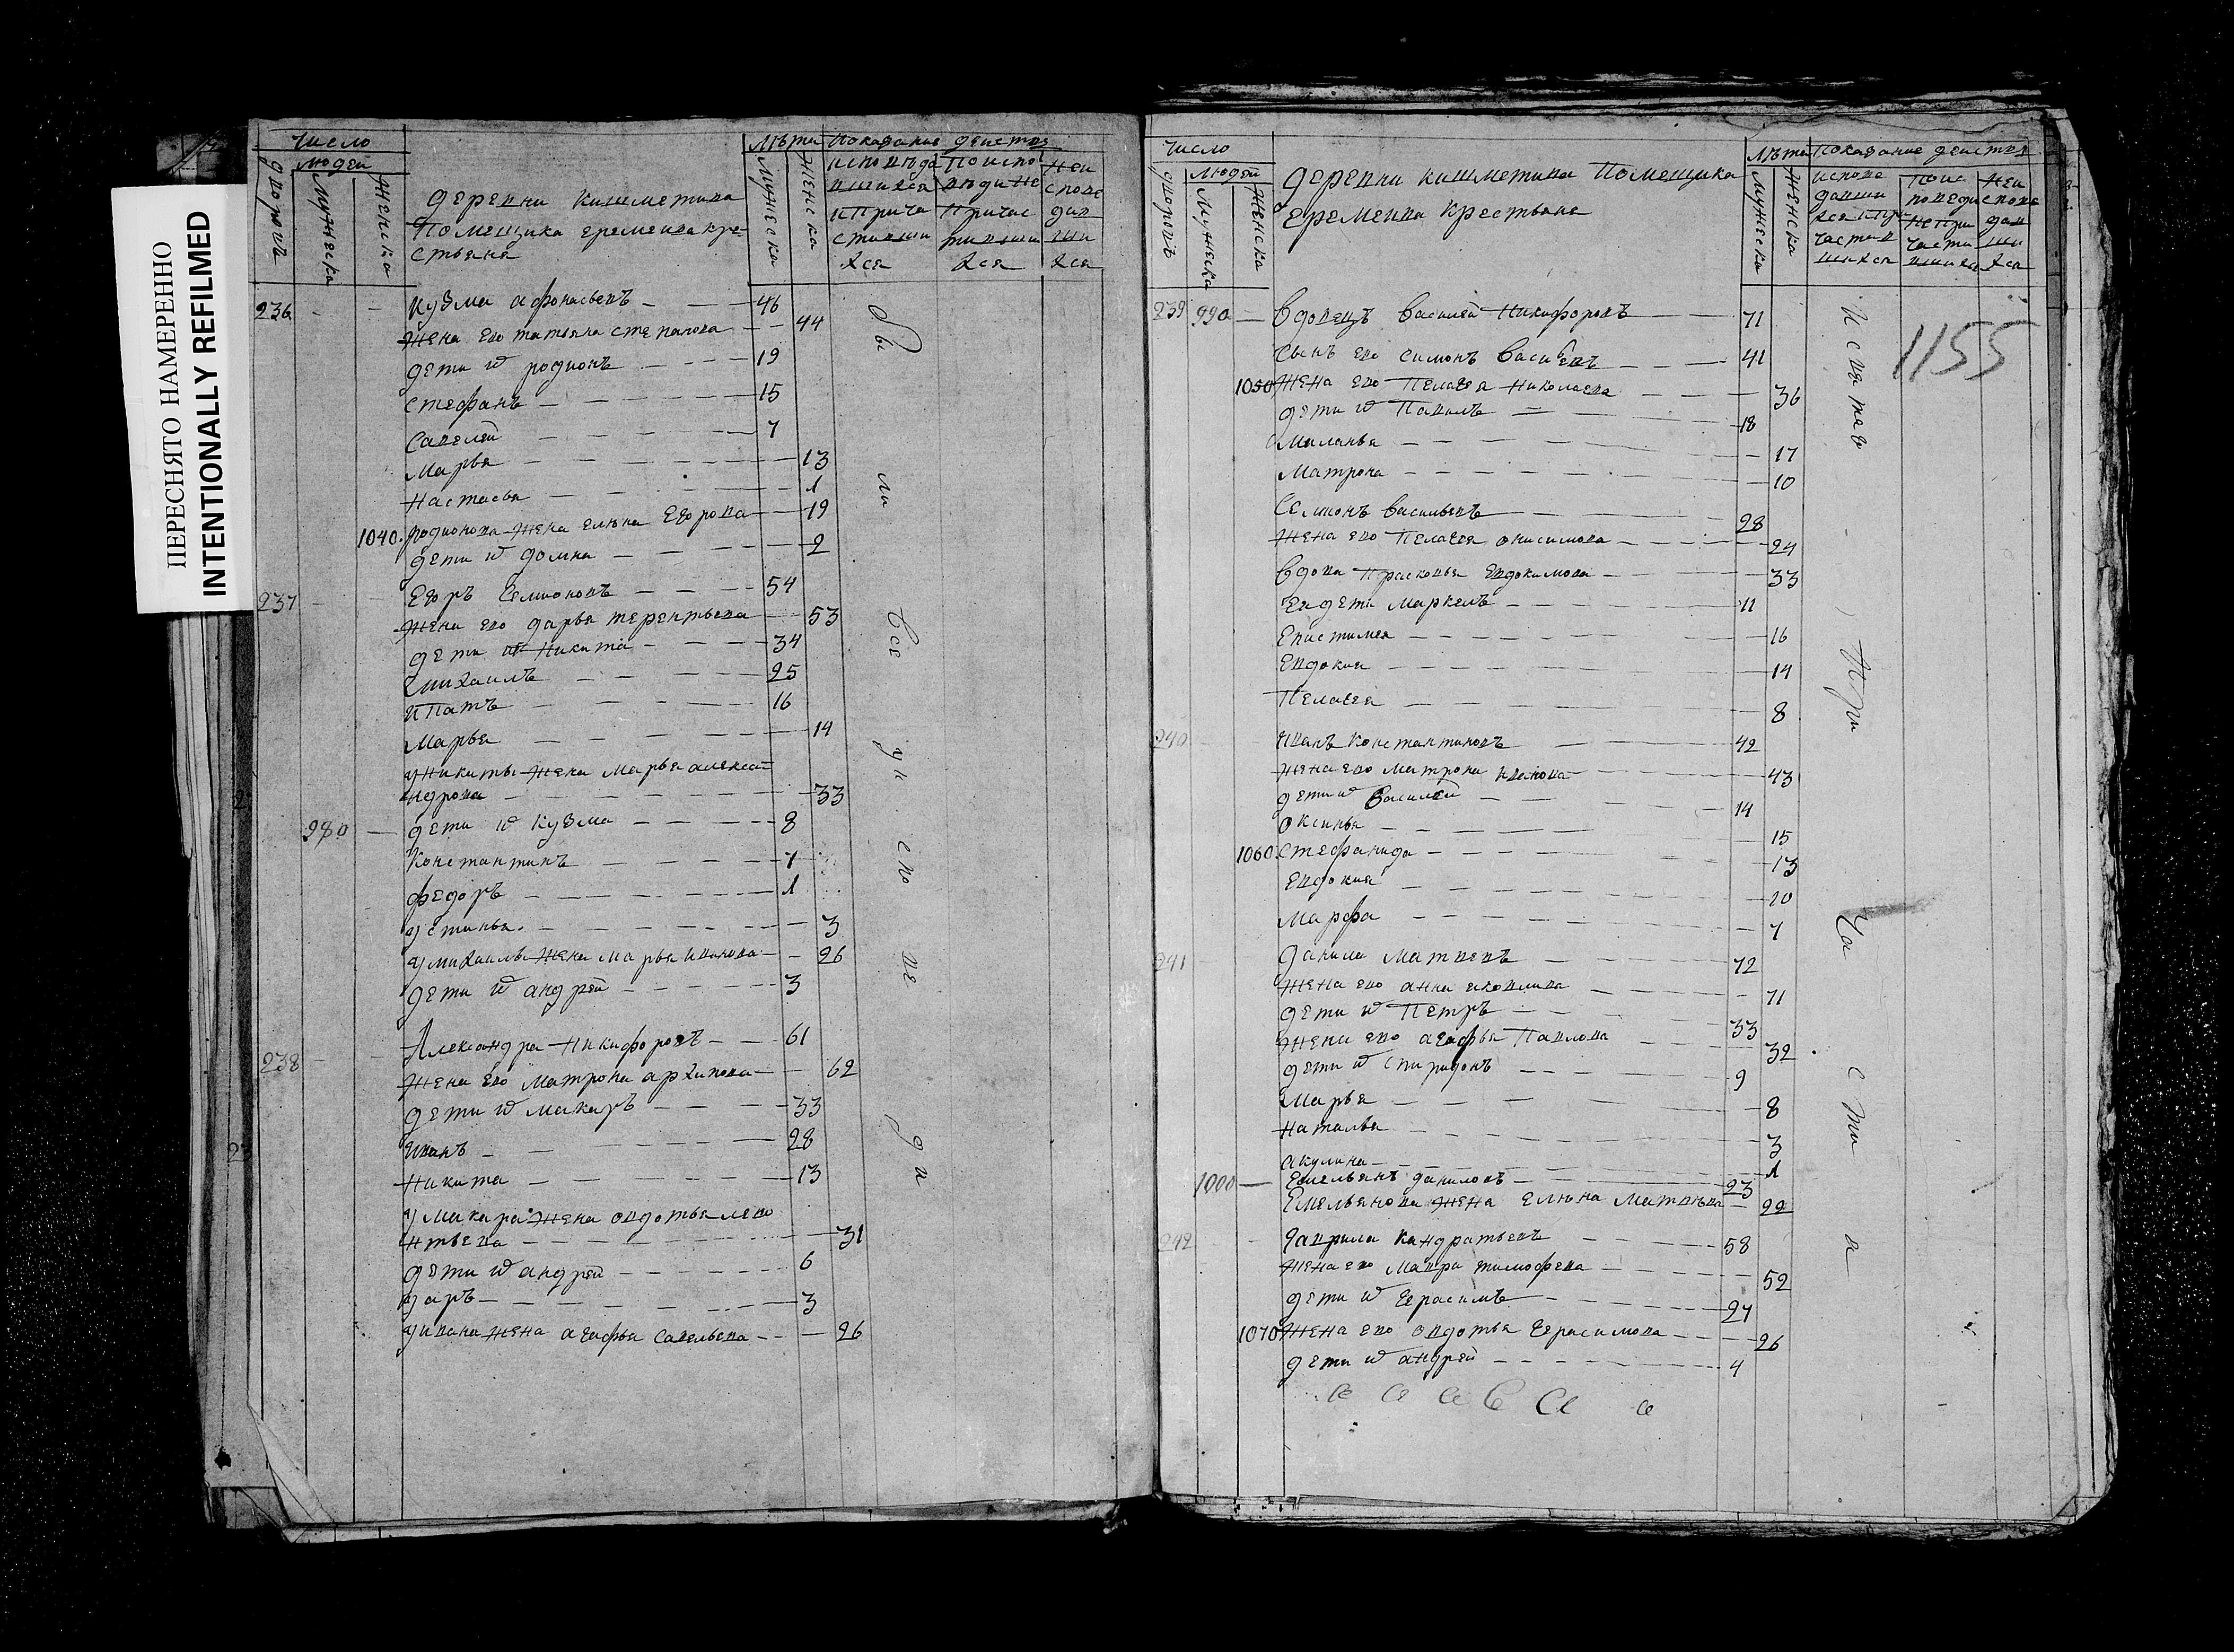 ПЕРЕСНЯТО НАМЕРЕННО
INTENTIONALLY REFILMED
число
людей
дворовъ
мужеска
женска
деревни кишметива
Помещика еремеива кре-
стьяня
лѣта
мужеска
женска
Показание действя
исповѣда
вшихся
и прича
стивши
хся
По испо
вѣди не
причас
тивши
хся
Неи
спове
дав
ши
хся
236 Кузма афонасьевъ 46
жена ево татьяна степанова 44
дети ѿ родионъ 19
стефанъ 15
савелей 7
марья 13
настасья 1
1040 родионова жена елѣна егорова 19
дети ѿ домна 2
237 Егоръ семионовъ 54
жена ево дарья терентьева 53
дети ѿ никита 34
михаилъ 25
ипатъ 16
марья 14
у никиты жена марья алекса=
ндрова 33
980 дети ѿ кузма 8
константинъ 7
федоръ 1
устинья 3
у михаилы жена марья иванова 26
дети ѿ андрей 3
238 Александра никифоровъ 61
жена ево матрона архипова 62
дети ѿ макаръ 33
иванъ 28
никита 13
у макара жена овдотья лево
нтьева 31
дети ѿ андрей 6
уаръ 3
у ивана жена агафья савельева 26
бы
ли
все
у и
спо
ве
ди
число
людей
дворовъ
мужеска
женска
деревни кишметива Помещика
еремеива крестьяня
лѣта
мужеска
женска
Показание действя
испове
давши
хся и пр
частив
шихся
Поис
поведи
не при
части
вшихся
Неи
спове
дав
ши
хся
1155
239 990 Вдовецъ василей никифоровъ 71
сынъ ево симонъ васильевъ 41
1050 жена ево пелагея николаева 36
дети ѿ павилъ 18
миланья 17
матрона 10
семионъ васильевъ 28
жена ево пелагея онисимова 24
вдова прасковья евдокимова 33
ея дети маркелъ 11
епистимея 16
евдокия 14
пелагея 8
240 иванъ константиновъ 42
жена ево матрона иванова 43
дети ѿ василей 14
оксинья 15
1060 стефанида 13
евдокия 10
марфа 7
241 данила матвеевъ 72
жена ево анна яковлива 71
дети ѿ петръ 33
жена ево агафья павлова 32
дети ѿ спиридонъ 9
марья 8
наталья 3
акулина 1
1000 емельянъ даниловъ 23
емельянова жена елѣна матвѣва 22
242 гаврила кандратьевъ 58
жена ево мавра тимофева 52
дети ѿ герасимъ 27
1070 жена ево овдотья герасимова 26
дети ѿ андрей 4
и
свя
таг
при
ча
с
ти
я